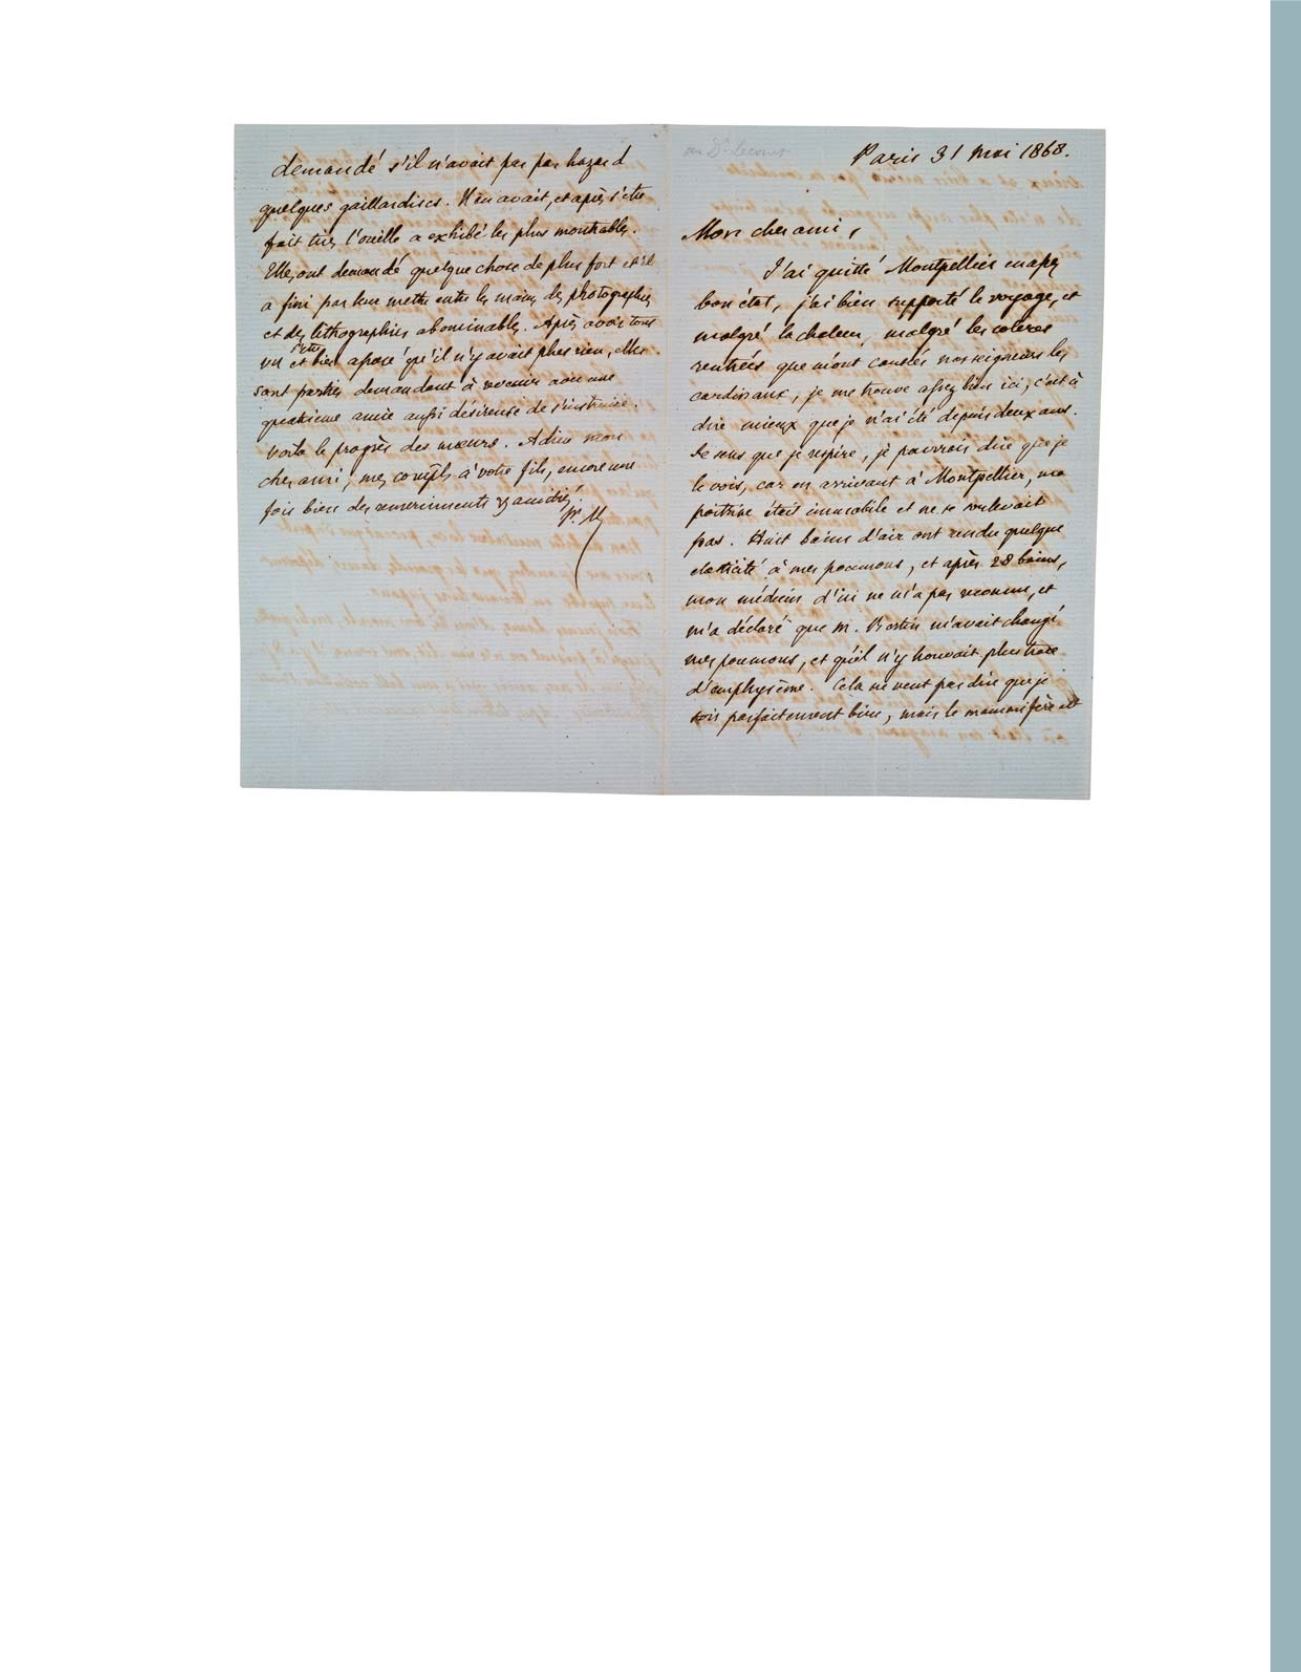 demandé s'il n'avait pas par hazard
quelques gaillardises. Il en avait, et après s'être
fait tirer l'oreille a exhibé les plus montrables.
Elles ont demandé quelque chose de plus fort et il
a fini par leur mettre entre les mains des photographies
et des lithographies abominables. Après avoir tout
vu et s'être bien assuré qu'il n'y avait plus rien, elles
sont parties demandant à revenir avec une
quatrième amie aussi désireuse de s'instruire.
voila le progrès des mœurs. Adieu mon
cher ami, mes complts à votre fils, encore une
fois bien des remerciments & amitiés.
Pr. M
au Dr.
Paris 31 mai 1868.
Mon cher ami,
J'ai quitté Montpellier en assez
bon état, j'ai bien supporté le voyage, et
malgré la chaleur, malgré les colères
rentrées que m'ont causées nos seigneurs les
cardinaux, je me trouve assez bien ici, c'est à
dire mieux que je n'ai été depuis deux ans.
Je sens que je respire, je pourrais dire que je
le vois, car en arrivant à Montpellier, ma
poitrine était immobile et ne se soulevait
pas. Huit bains d'air ont rendu quelque
élasticité à mes poumons, et après 28 bains,
mon médecin d'ici ne m'a pas reconnu, et
m'a déclaré que M. Bertin m'avait changé
mes poumons, et qu'il n'y trouvait plus trace
d'emphysème. Cela ne veut pas dire que je
sois parfaitement bien, mais le mammifère est